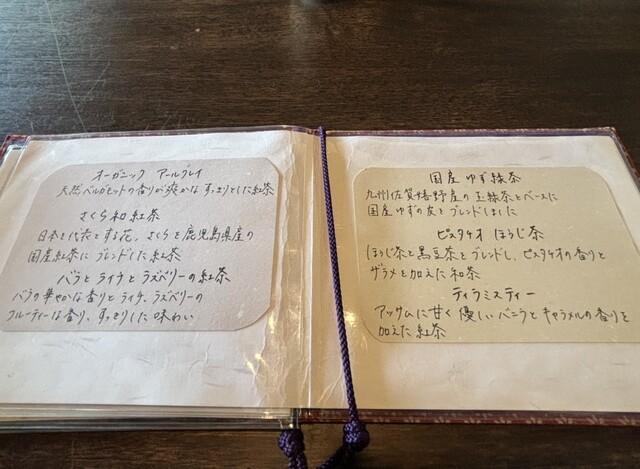 オーガニック アールグレイ
天然ベルガモットの香りが爽かな すっきりとした紅茶
さくら和紅茶
日本を代表とする花、さくらを鹿児島県産の
国産紅茶にブレンドした紅茶
バラとライチとラズベリーの紅茶
バラの華やかな香りとライチ、ラズベリーの
フルーティーな香り、すっきりした味わい
国産ゆず緑茶
九州佐賀嬉野産の玉緑茶をベースに
国産ゆずの皮をブレンドしました
ピスタチオ ほうじ茶
ほうじ茶と黒豆茶をブレンドし、ピスタチオの香りと
ザラメを加えた和茶
ティラミスティー
アッサムに甘く優しいバニラとキャラメルの香りを
加えた紅茶